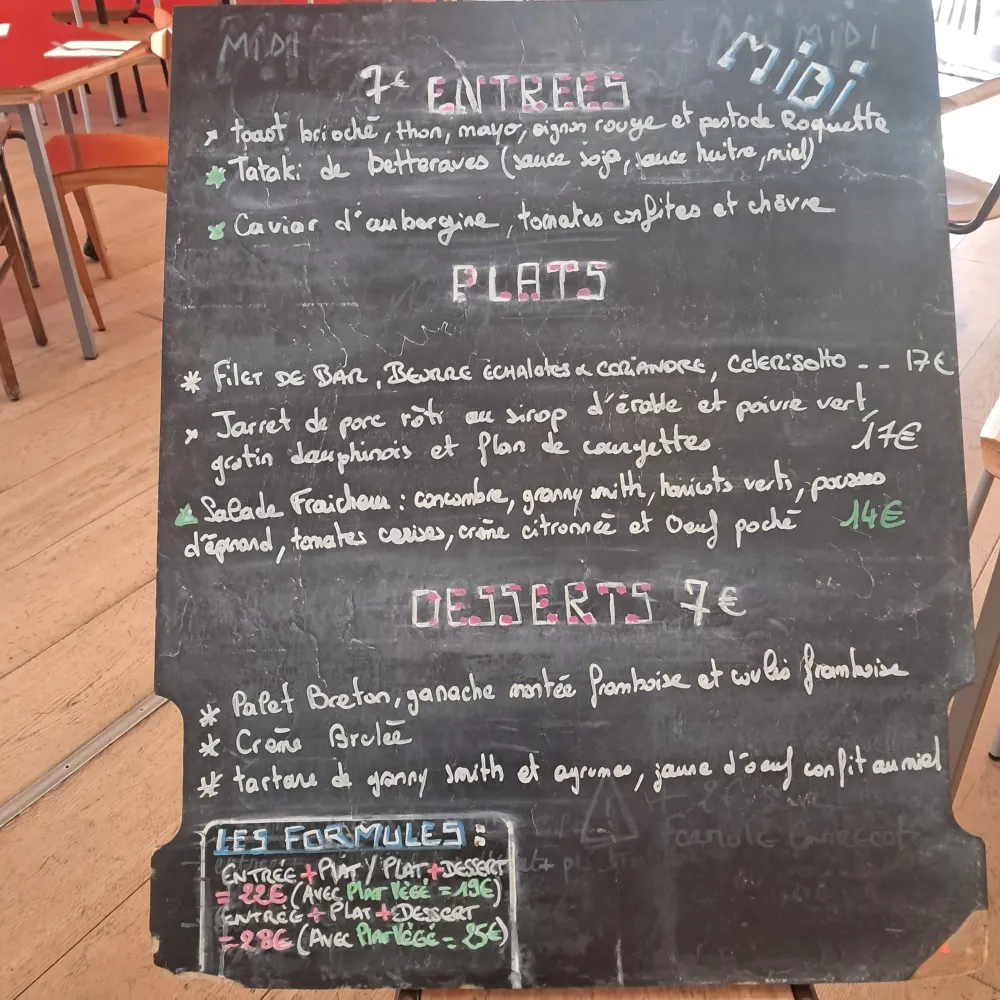 MiDi
MiDi
MiDi
7€ ENTREES
toast brioché, thon, mayo, oignon rouge et pesto de Roquette
Tataki de betteraves (sauce soja, sauce huitre, miel)
Caviar d'aubergine, tomates confites et chèvre
PLATS
* FILET DE BAR, BEURRE ÉCHALOTES & CORIANDRE, CELERISOTTO -- 17€
Jarret de porc rôti au sirop d'érable et poivre vert,
gratin dauphinois et flan de courgettes 17€
Salade Fraicheur : concombre, granny smith, haricots verts, pousses
d'épinard, tomates cerises, crème citronnée et Oeuf poché 14€
DESSERTS 7€
* Palet Breton, ganache montée framboise et coulis framboise
* Crème Brulée
* tartare de granny smith et agrumes, jaune d'oeuf confit au miel
LES FORMULES :
ENTRÉE + PLAT / PLAT + DESSERT
= 22€ (AVEC PLAT VÉGÉ = 19€)
ENTRÉE + PLAT + DESSERT
= 28€ (AVEC PLAT VÉGÉ = 25€)